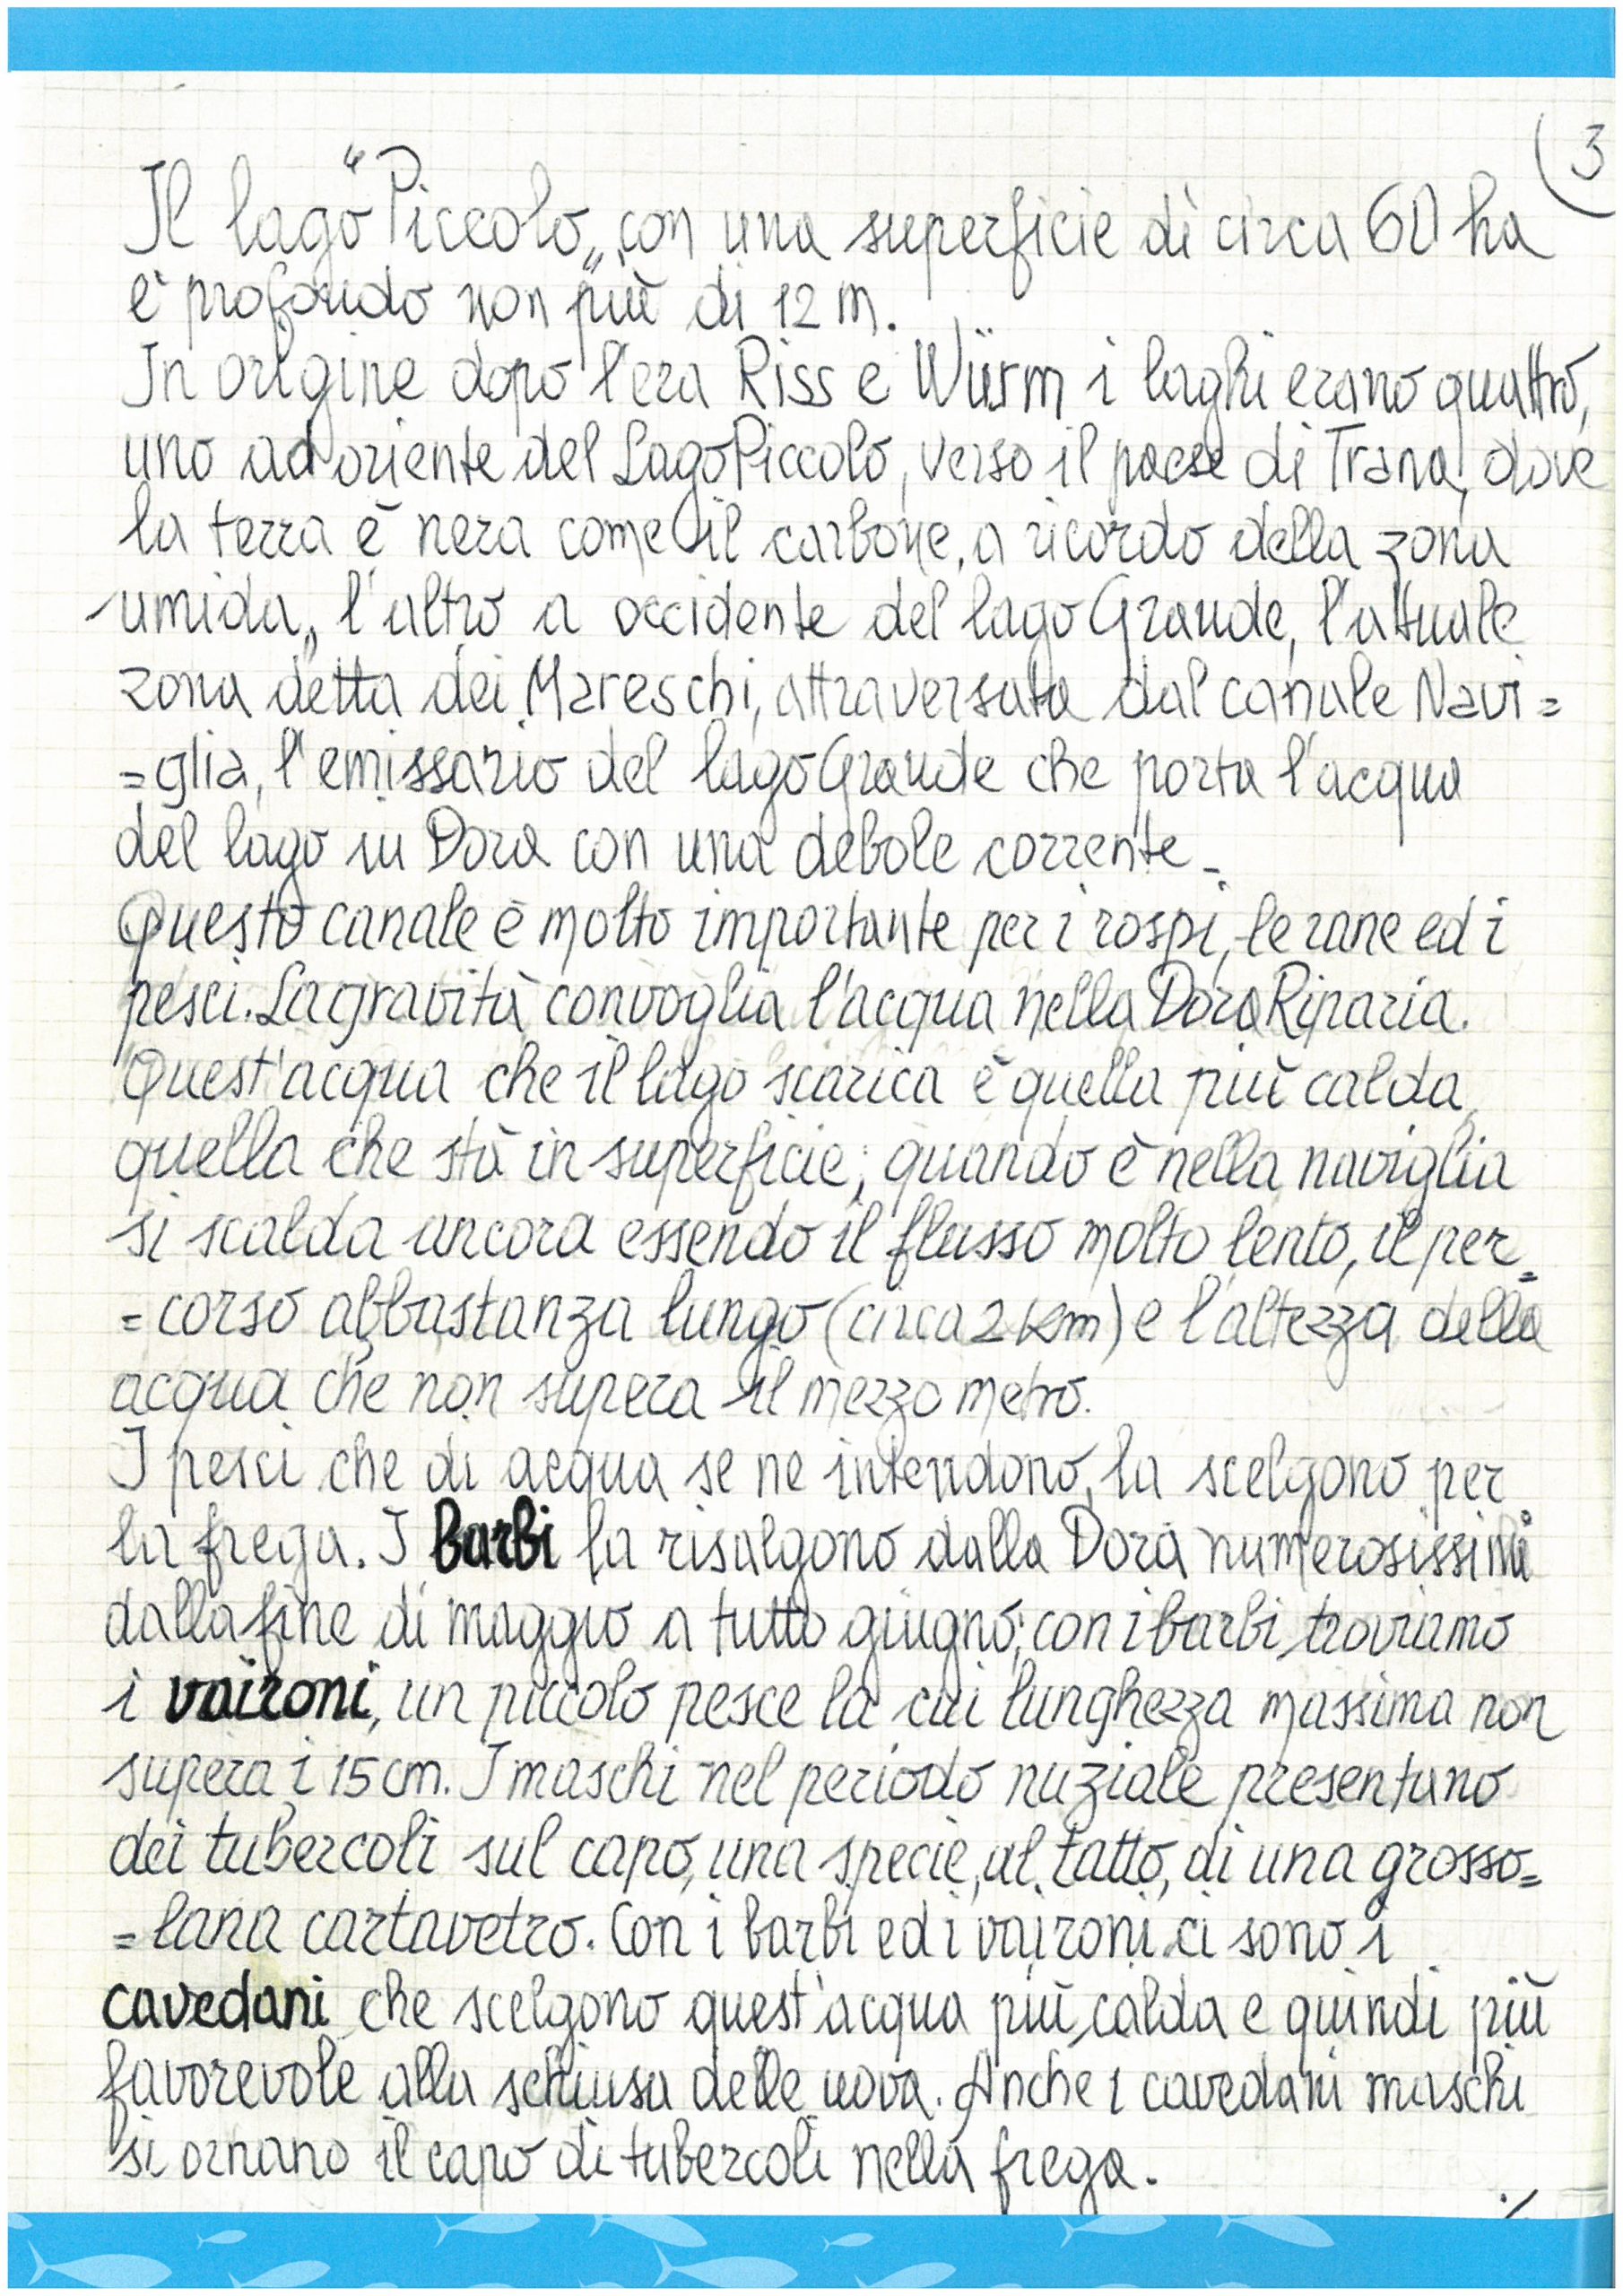 3
Il lago "Piccolo„ con una superficie di circa 60 ha
è profondo non più di 12 m.
In origine dopo l'era Riss e Würm i laghi erano quattro,
uno ad oriente del Lago Piccolo, verso il paese di Trana, dove
la terra è nera come il carbone, a ricordo della zona
umida„ l'altro a occidente del lago Grande, l'attuale
zona detta dei Mareschi, attraversata dal canale Navi=
=glia, l'emissario del lago Grande che porta l'acqua
del lago in Dora con una debole corrente.
Questo canale è molto importante per i rospi, le rane ed i
pesci. La gravità convoglia l'acqua nella Dora Riparia.
Quest'acqua che il lago scarica è quella più calda,
quella che stà in superficie; quando è nella naviglia
si scalda ancora essendo il flusso molto lento, il per=
=corso abbastanza lungo (circa 2 Km) e l'altezza della
acqua che non supera il mezzo metro.
I pesci che di acqua se ne intendono, la scelgono per
la frega. I barbi la risalgono dalla Dora numerosissimi
dalla fine di maggio a tutto giugno; con i barbi troviamo
i vaironi, un piccolo pesce la cui lunghezza massima non
supera i 15 cm. I maschi nel periodo nuziale presentano
dei tubercoli sul capo, una specie, al tatto, di una grosso=
=lana cartavetro. Con i barbi ed i vaironi ci sono i
cavedani che scelgono quest'acqua più calda e quindi più
favorevole alla schiusa delle uova. Anche i cavedani maschi
si ornano il capo di tubercoli nella frega.
./